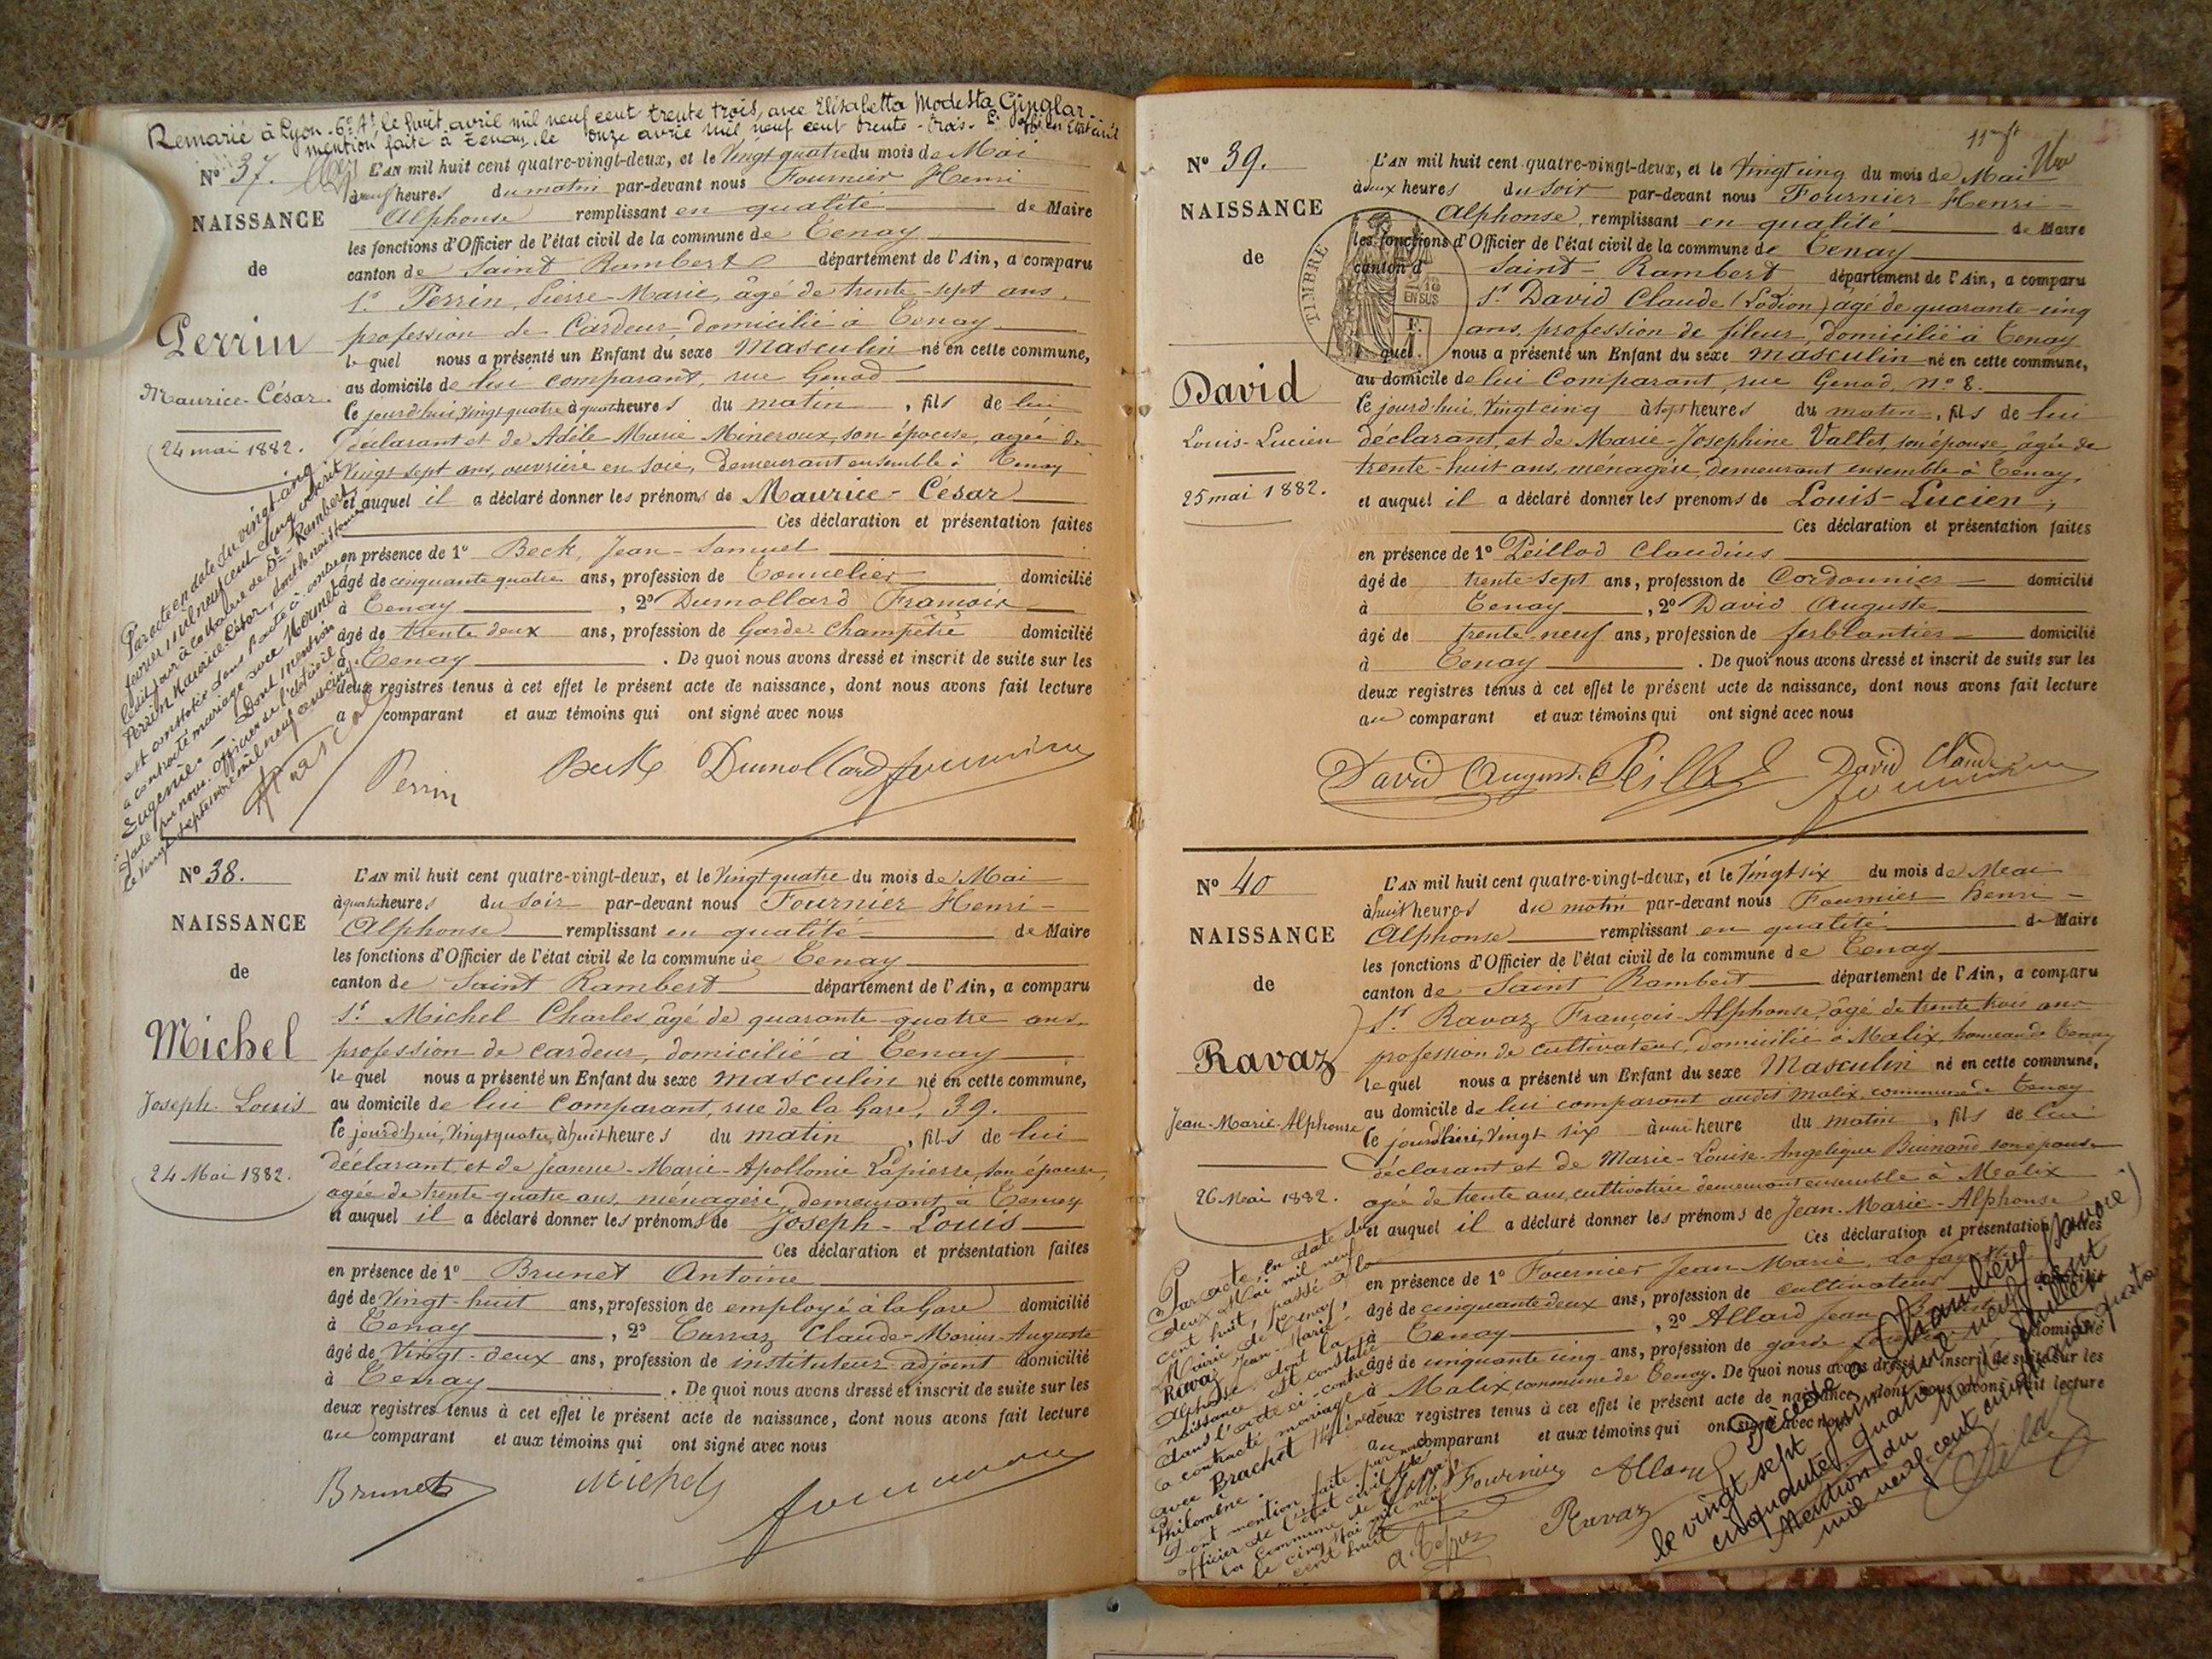 Remarié à Lyon - 6e Art le huit avril mil neuf cent trente trois, avec Elisabetta Modesta Ginglar.
mention faite à Tenay, le onze avril mil neuf cent trente-trois.
No 37.
NAISSANCE
de
Perrin
Maurice-César.
24 mai 1882.
L'AN mil huit cent quatre-vingt-deux, et le Vingt quatre du mois de Mai
à neuf heures du matin par-devant nous Fournier Henri
Alphonse remplissant en qualité de Maire
les fonctions d'Officier de l'état civil de la commune de Tenay
canton de Saint Rambert département de l'Ain, a comparu
Sr Perrin, Pierre-Marie, âgé de trente-sept ans,
profession de Cardeur domicilié à Tenay
lequel nous a présenté un Enfant du sexe Masculin né en cette commune,
au domicile de lui comparant, rue Genod
le jourd'hui, Vingt quatre à quatre heures du matin, fils de lui
déclarant et de Adèle Marie Mineroux, son épouse, agée de
Vingt sept ans, ouvrière en soie, demeurant ensemble à Tenay
et auquel il a déclaré donner les prénoms de Maurice-César
Ces déclaration et présentation faites
en présence de 1o Beck, Jean-Samuel
âgé de cinquante quatre ans, profession de Tonnelier domicilié
à Tenay, 2o Dumollard François
âgé de trente deux ans, profession de Garde Champêtre domicilié
à Tenay. De quoi nous avons dressé et inscrit de suite sur les
deux registres tenus à cet effet le présent acte de naissance, dont nous avons fait lecture
a comparant et aux témoins qui ont signé avec nous
Perrin Beck Dumollard Fournier
Par acte en date du vingt cinq
février mil neuf cent cinq inscrit
ledit jour à la Mairie de St-Rambert,
Perrin Maurice-César, dont la naissance
est constatée dans l'acte ci-contre
a contracté mariage avec
Eugénie. - Dont mention
faite par nous, officier de l'état civil
le vingt sept février mil neuf cent cinq.
No 38.
NAISSANCE
de
Michel
Joseph Louis
24 Mai 1882.
L'AN mil huit cent quatre-vingt-deux, et le Vingt quatre du mois de Mai
à quatre heures du soir par-devant nous Fournier Henri-
Alphonse remplissant en qualité de Maire
les fonctions d'Officier de l'état civil de la commune de Tenay
canton de Saint Rambert département de l'Ain, a comparu
Sr Michel Charles âgé de quarante-quatre ans.
profession de cardeur, domicilié à Tenay
lequel nous a présenté un Enfant du sexe masculin né en cette commune,
au domicile de lui Comparant, rue de la Gare, 39.
le jourd'hui, Vingt quatre, à huit heures du matin, fils de lui
déclarant et de Jeanne-Marie-Apollonie Lapierre, son épouse,
agée de trente-quatre ans, ménagère, demeurant à Tenay
et auquel il a déclaré donner les prénoms de Joseph-Louis
Ces déclaration et présentation faites
en présence de 1o Brunet Antoine
âgé de Vingt-huit ans, profession de employé à la Gare domicilié
à Tenay, 2o Carraz Claude-Marius-Auguste
âgé de Vingt-deux ans, profession de instituteur-adjoint domicilié
à Tenay. De quoi nous avons dressé et inscrit de suite sur les
deux registres tenus à cet effet le présent acte de naissance, dont nous avons fait lecture
au comparant et aux témoins qui ont signé avec nous
Brunet Michel Fournier
11e ft
No 39.
NAISSANCE
de
David
Louis-Lucien
25 mai 1882.
TIMBRE
2/10
EN SUS
L'AN mil huit cent quatre-vingt-deux, et le Vingt cinq du mois de Mai
à deux heures du soir par-devant nous Fournier Henri-
Alphonse, remplissant en qualité de Maire
les fonctions d'Officier de l'état civil de la commune de Tenay
canton d Saint-Rambert département de l'Ain, a comparu
Sr David Claude (Lodion) âgé de quarante-cinq
ans, profession de fileur, domicilié à Tenay
lequel nous a présenté un Enfant du sexe masculin né en cette commune,
au domicile de lui Comparant, rue Genod, No 8.
le jourd'hui, Vingt cinq à sept heures du matin, fils de lui
déclarant, et de Marie-Josephine Vallet, son épouse, âgée de
trente-huit ans, ménagère, demeurant ensemble à Tenay,
et auquel il a déclaré donner les prénoms de Louis-Lucien,
Ces déclaration et présentation faites
en présence de 1o Peillod Claudius
âgé de trente-sept ans, profession de Cordonnier domicilié
à Tenay, 2o David Auguste
âgé de trente-neuf ans, profession de ferblantier domicilié
à Tenay. De quoi nous avons dressé et inscrit de suite sur les
deux registres tenus à cet effet le présent acte de naissance, dont nous avons fait lecture
au comparant et aux témoins qui ont signé avec nous
David Auguste Peillod David Claude
Fournier
No 40
NAISSANCE
de
Ravaz
Jean-Marie-Alphonse
26 Mai 1882.
L'AN mil huit cent quatre-vingt-deux, et le Vingt six du mois de Mai
à huit heures du matin par-devant nous Fournier Henri-
Alphonse remplissant en qualité de Maire
les fonctions d'Officier de l'état civil de la commune de Tenay
canton de Saint Rambert département de l'Ain, a comparu
Sr Ravaz François-Alphonse, âgé de trente trois ans
profession de cultivateur, domicilié à Malix, hameau de Tenay
lequel nous a présenté un Enfant du sexe Masculin né en cette commune,
au domicile de lui comparant audit Malix, commune de Tenay
le jourd'hui, Vingt six à une heure du matin, fils de lui
déclarant et de Marie-Louise-Angelique son épouse
agée de trente ans, cultivatrice demeurant ensemble à Malix
et auquel il a déclaré donner les prénoms de Jean-Marie-Alphonse
Ces déclaration et présentation faites
en présence de 1o Fournier Jean Marie
âgé de cinquante deux ans, profession de cultivateur domicilié
à Tenay, 2o Allard Jean
âgé de cinquante cinq ans, profession de garde domicilié
à Malix, commune de Tenay. De quoi nous avons dressé et inscrit de suite sur les
deux registres tenus à cet effet le présent acte de naissance, dont nous avons fait lecture
au comparant et aux témoins qui ont signé avec nous
Fournier Allard
Ravaz
Par acte en date du
deux Mai mil neuf
cent huit, passé à la
Mairie de Tenay,
Ravaz Jean-Marie-
Alphonse, dont la
naissance est constatée
dans l'acte ci-contre
a contracté mariage
avec Brachet Hélène
Philomène.
Dont mention faite par nous
officier de l'état civil de
la commune de Tenay,
le cinq Mai mil neuf
cent huit
Décédé à Chambéry (Savoie)
le vingt sept juin mil neuf cent
cinquante quatre.
Mention du juillet
mil neuf cent cinquante quatre